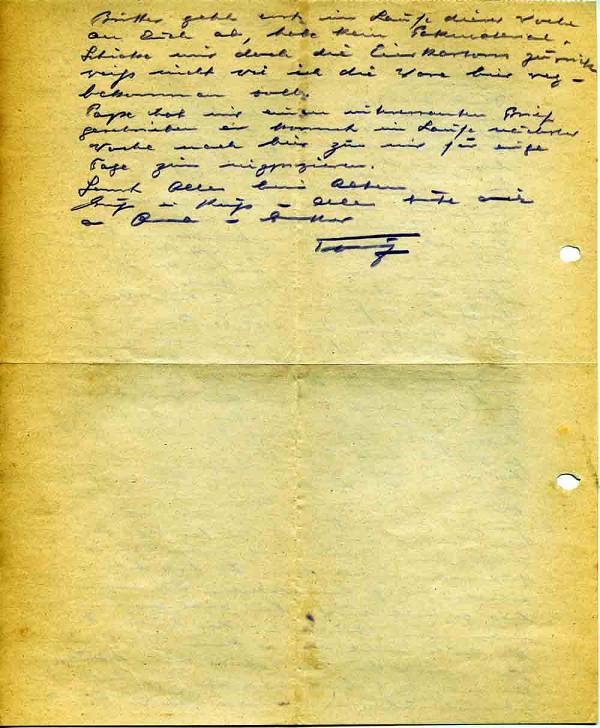 Butter geht erst im Laufe dieser Woche
an Dich ab, habe kein Pakmaterial.
Schicke mir doch die Eierkartons zurück
weiß nicht wie ich die Ware hier weg-
bekommen soll.
Papa hat mir einen interessanten Brief
geschrieben er kommt im Laufe nächster
Woche nach hier zu mir für einige
Tage zum
Sonst Alles beim Alten
Gruß u Kuß – Alles Gute
a –